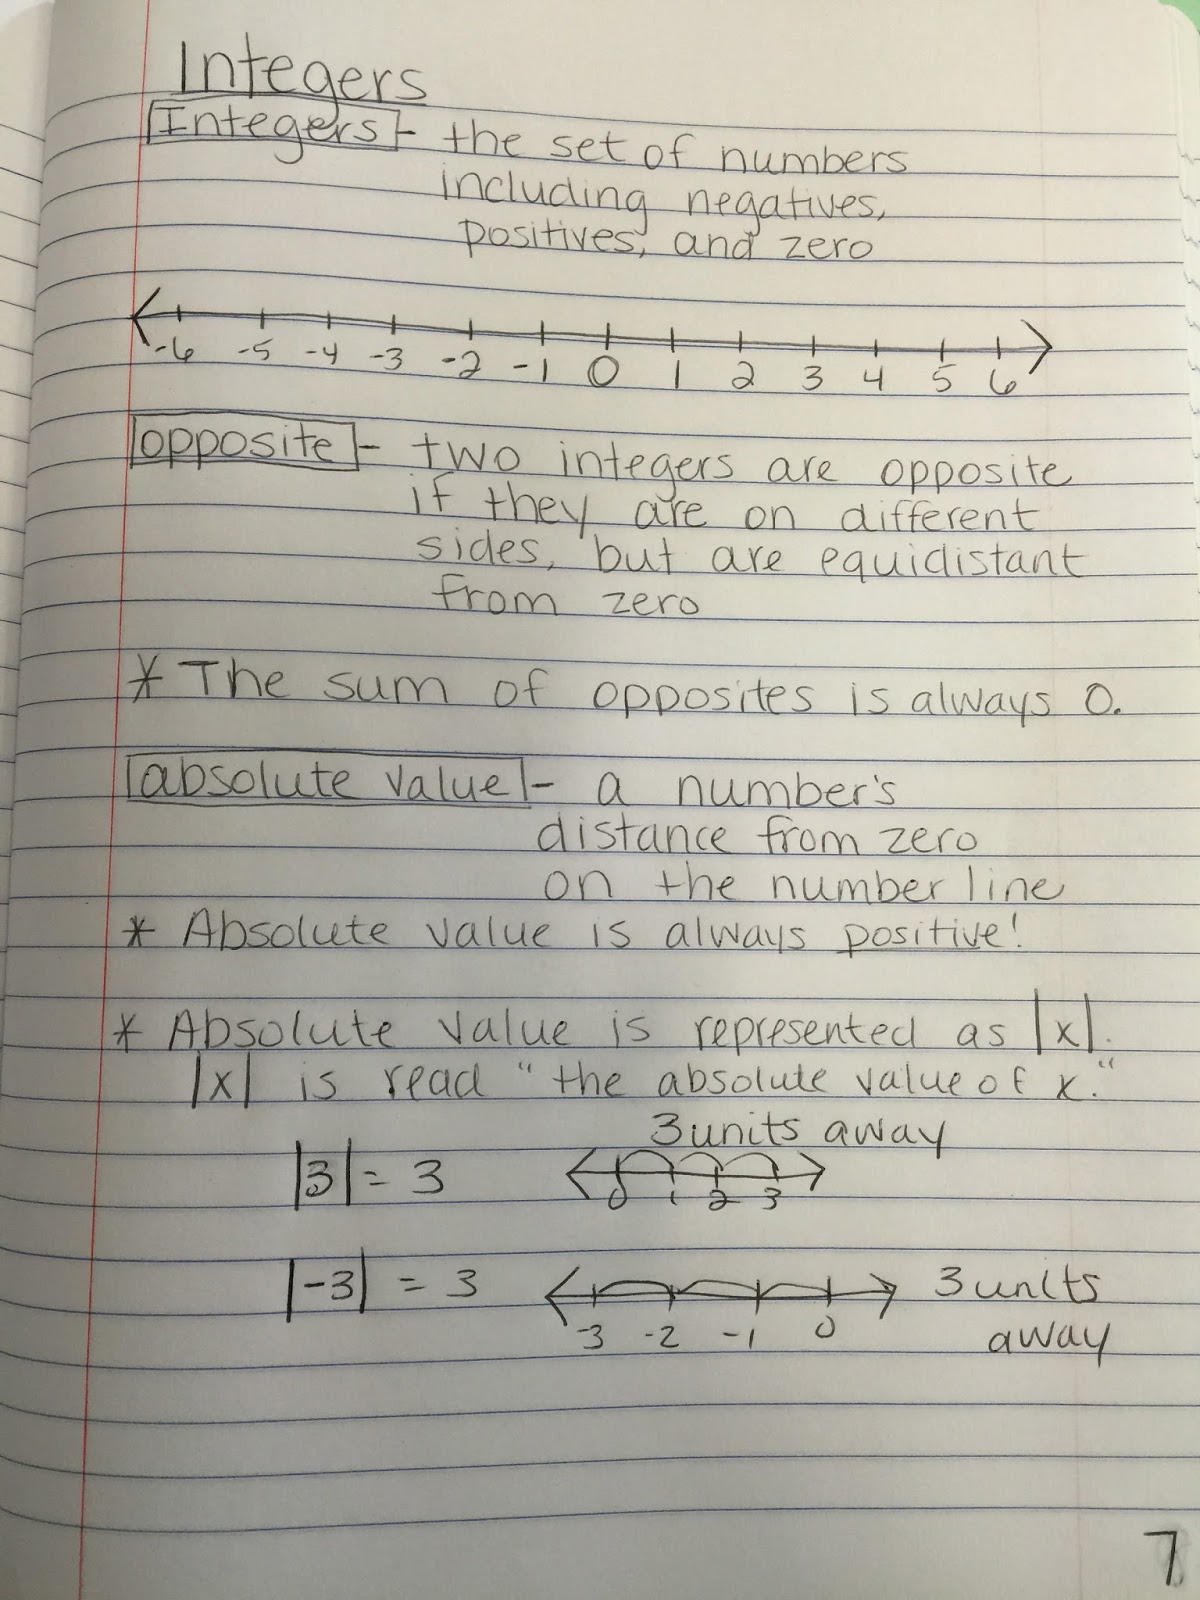 Integers
Integers - the set of numbers
including negatives,
positives, and zero
-6 -5 -4 -3 -2 -1 0 1 2 3 4 5 6
opposite - two integers are opposite
if they are on different
sides, but are equidistant
from zero
* The sum of opposites is always 0.
absolute value - a number's
distance from zero
on the number line
* Absolute value is always positive!
* Absolute value is represented as |x|.
|x| is read "the absolute value of x."
3 units away
|3| = 3
0 1 2 3
|-3| = 3
3 units
-3 -2 -1 0
away
7